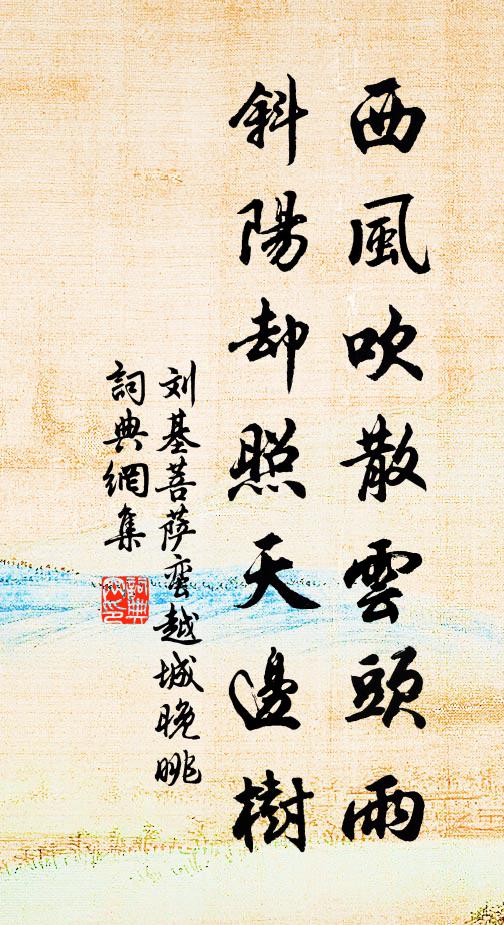 西風吹散雲頭雨
斜陽却照天邊樹
刘基菩萨蛮越城晚眺
詞典網集